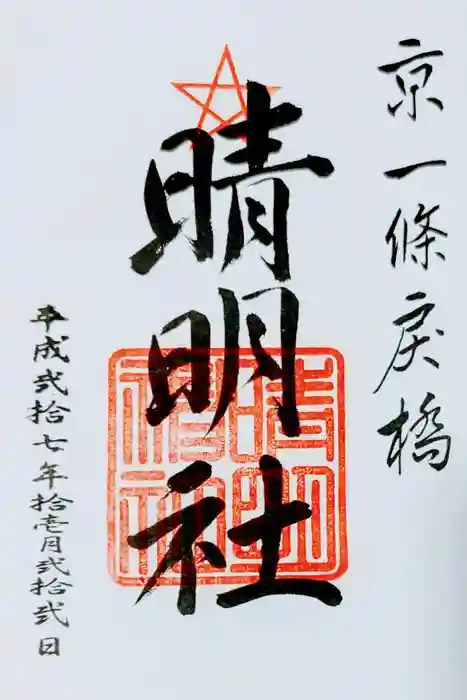 京一條戻橋
晴明社
平成弐拾七年拾壱月弐拾弐日